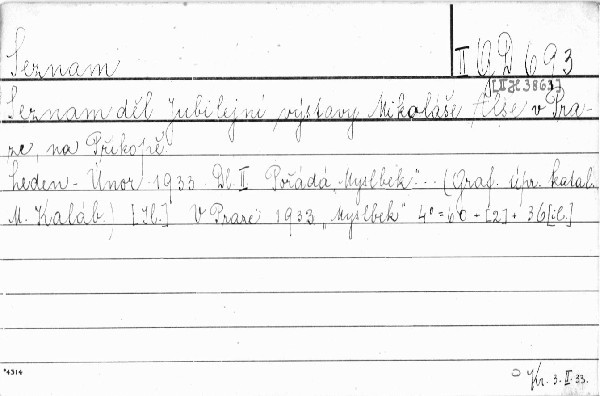 Seznam
II OD 693
[II H 3863]
Seznam děl jubilejní výstavy Mikoláše Alše v Pra-
ze, na Příkopě
Leden - Únor 1933. Dl. II Pořádá „Myslbek“... (Graf. úpr. katal.
M. Kaláb.) [Il.] V Praze 1933 „Myslbek“ 4° = 60 + [2] + 36 [il.]
*4314
Kr. 3. II. 33.